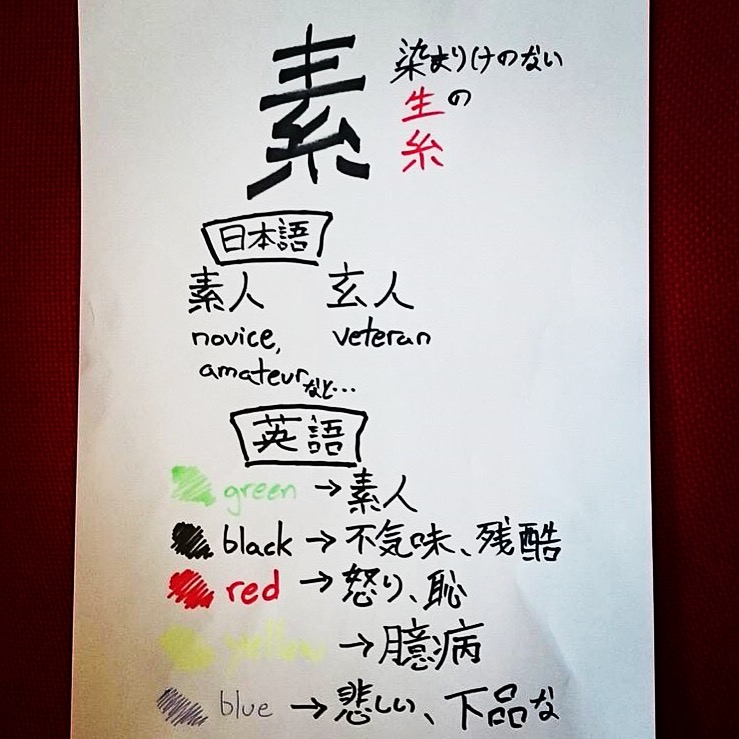 素
染まりけのない
生の
糸
日本語
素人 玄人
novice, veteran
amateurなど…
英語
green → 素人
black → 不気味、残酷
red → 怒り、恥
yellow → 臆病
blue → 悲しい、下品な